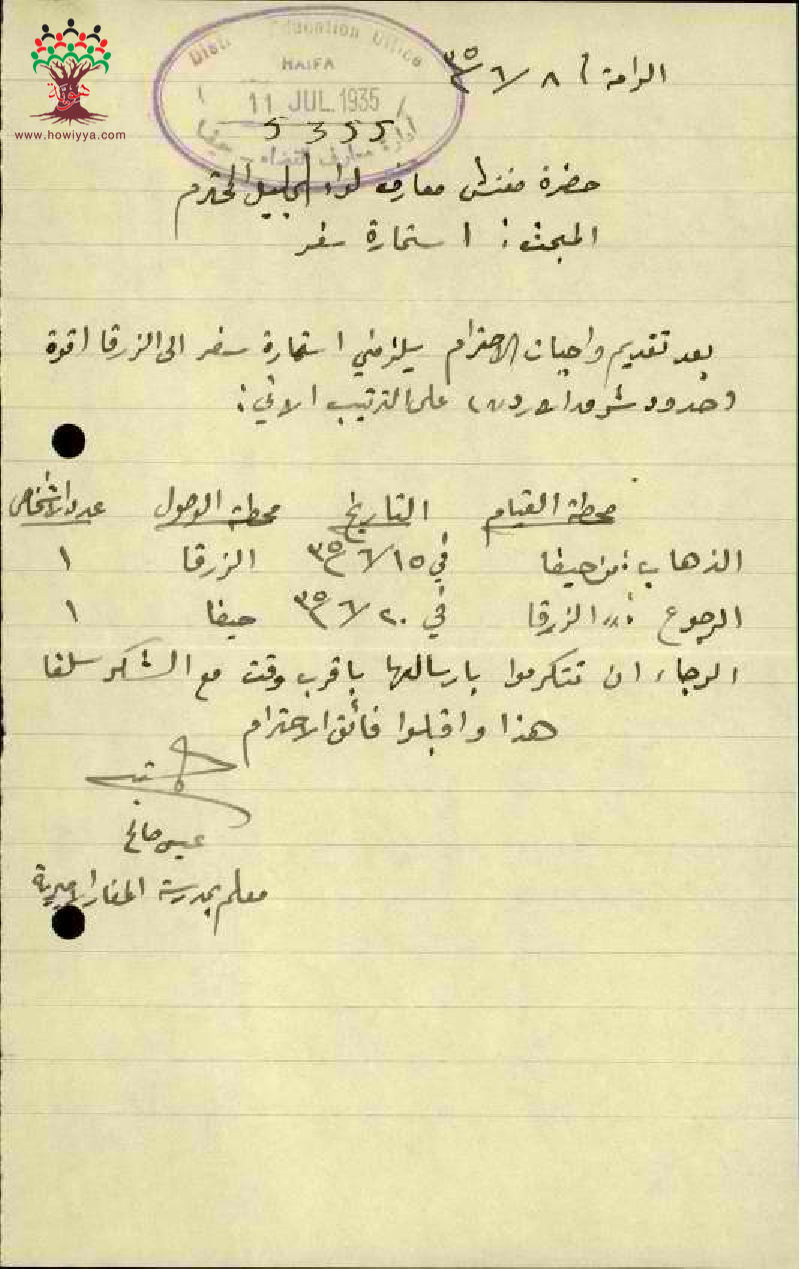 هوية
www.howiyya.com
District Education Office
HAIFA
11 JUL. 1935
5355
إدارة معارف القضاء - حيفا
الرامة في ٨/٦/٩٣٥
حضرة مفتش معارف لواء الجليل المحترم
المبحث: استمارة سفر
بعد تقديم واجبات الاحترام يلزمني استمارة سفر الى الزرقا
(حدود شرق الاردن) على الترتيب الاتي:
محطة القيام التاريخ محطة الوصول عدد الاشخاص
الذهاب: من حيفا في ١٥/٦/٩٣٥ الزرقا ١
الرجوع: " الزرقا في ٢٠/٦/٩٣٥ حيفا ١
الرجاء ان تتكرموا بارسالها باقرب وقت مع الشكر سلفا
هذا واقبلوا فائق الاحترام
عيسى صالح
معلم بمدرسة المغار الاميرية